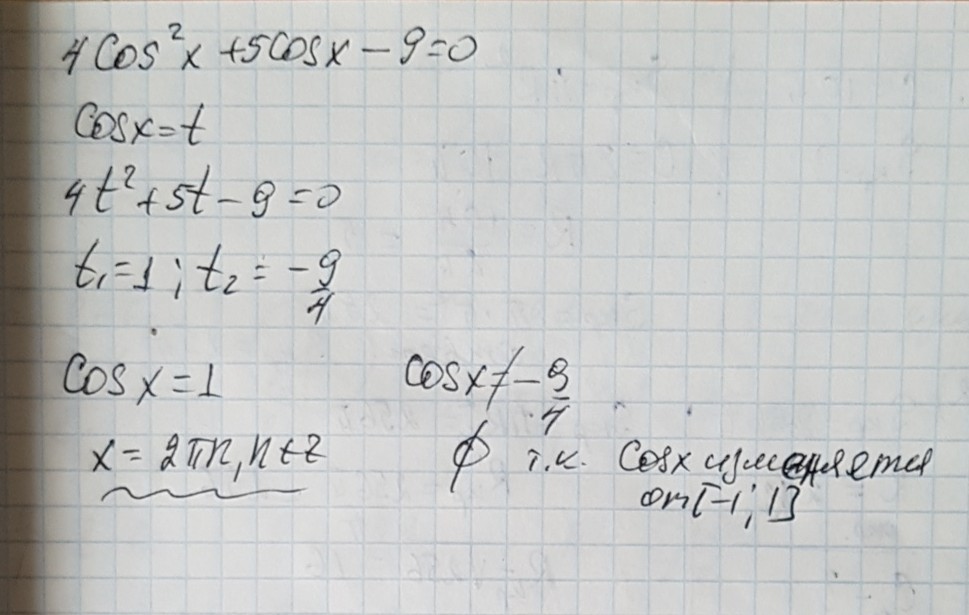 4Cos²x + 5Cosx − 9 = 0
Cosx = t
4t² + 5t − 9 = 0
t₁ = 1 ; t₂ = −9/4
Cos x = 1 Cosx ≠ −9/4
x = 2πn, n ∈ Z ∅ т.к. Cosx изменяется
от [−1; 1]